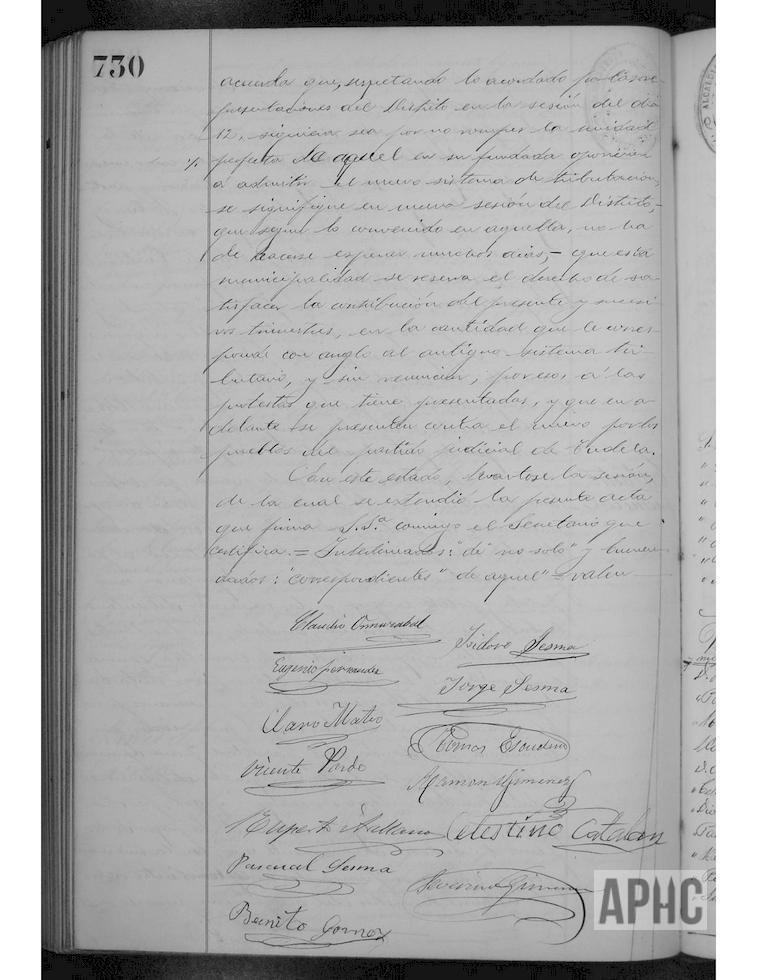 730
acuerda que, respetando lo acordado por las re-
presentaciones del Distrito en la sesión del día
12, siquiera sea por no romper la unidad
perfecta de aquel en su fundada oposición
á admitir el nuevo sistema de tributación,
se signifique en nueva sesión del Distrito,
que según lo convenido en aquella, no ha
de hacerse esperar muchos días, - que esta
municipalidad se reserva el derecho de sa-
tisfacer la contribución del presente y sucesi-
vos trimestres, en la cantidad que le corres-
ponde con arreglo al antiguo sistema tri-
butario, y sin renunciar, por eso, á las
protestas que tiene presentadas, y que en a-
delante se presenten contra el nuevo por los
pueblos del partido judicial de Tudela.
Con este estado, levantose la sesión,
de la cual se extendió la presente acta
que firma S.Sª conmigo el Secretario que
certifica. = Interlineados: "de" "no solo" y
dados: "correspondientes" "de aquel" = valen
Claudio
Isidoro Sesma
Eugenio Fernandez
Jorge Sesma
Claro Mateo
Roman Escudero
Vicente Pardo
Ramon Gimenez
Ruperto Arellano
Celestino Catalan
Pascual Sesma
Severino Gimenez
Benito Gomez
ALCALDIA
APHC